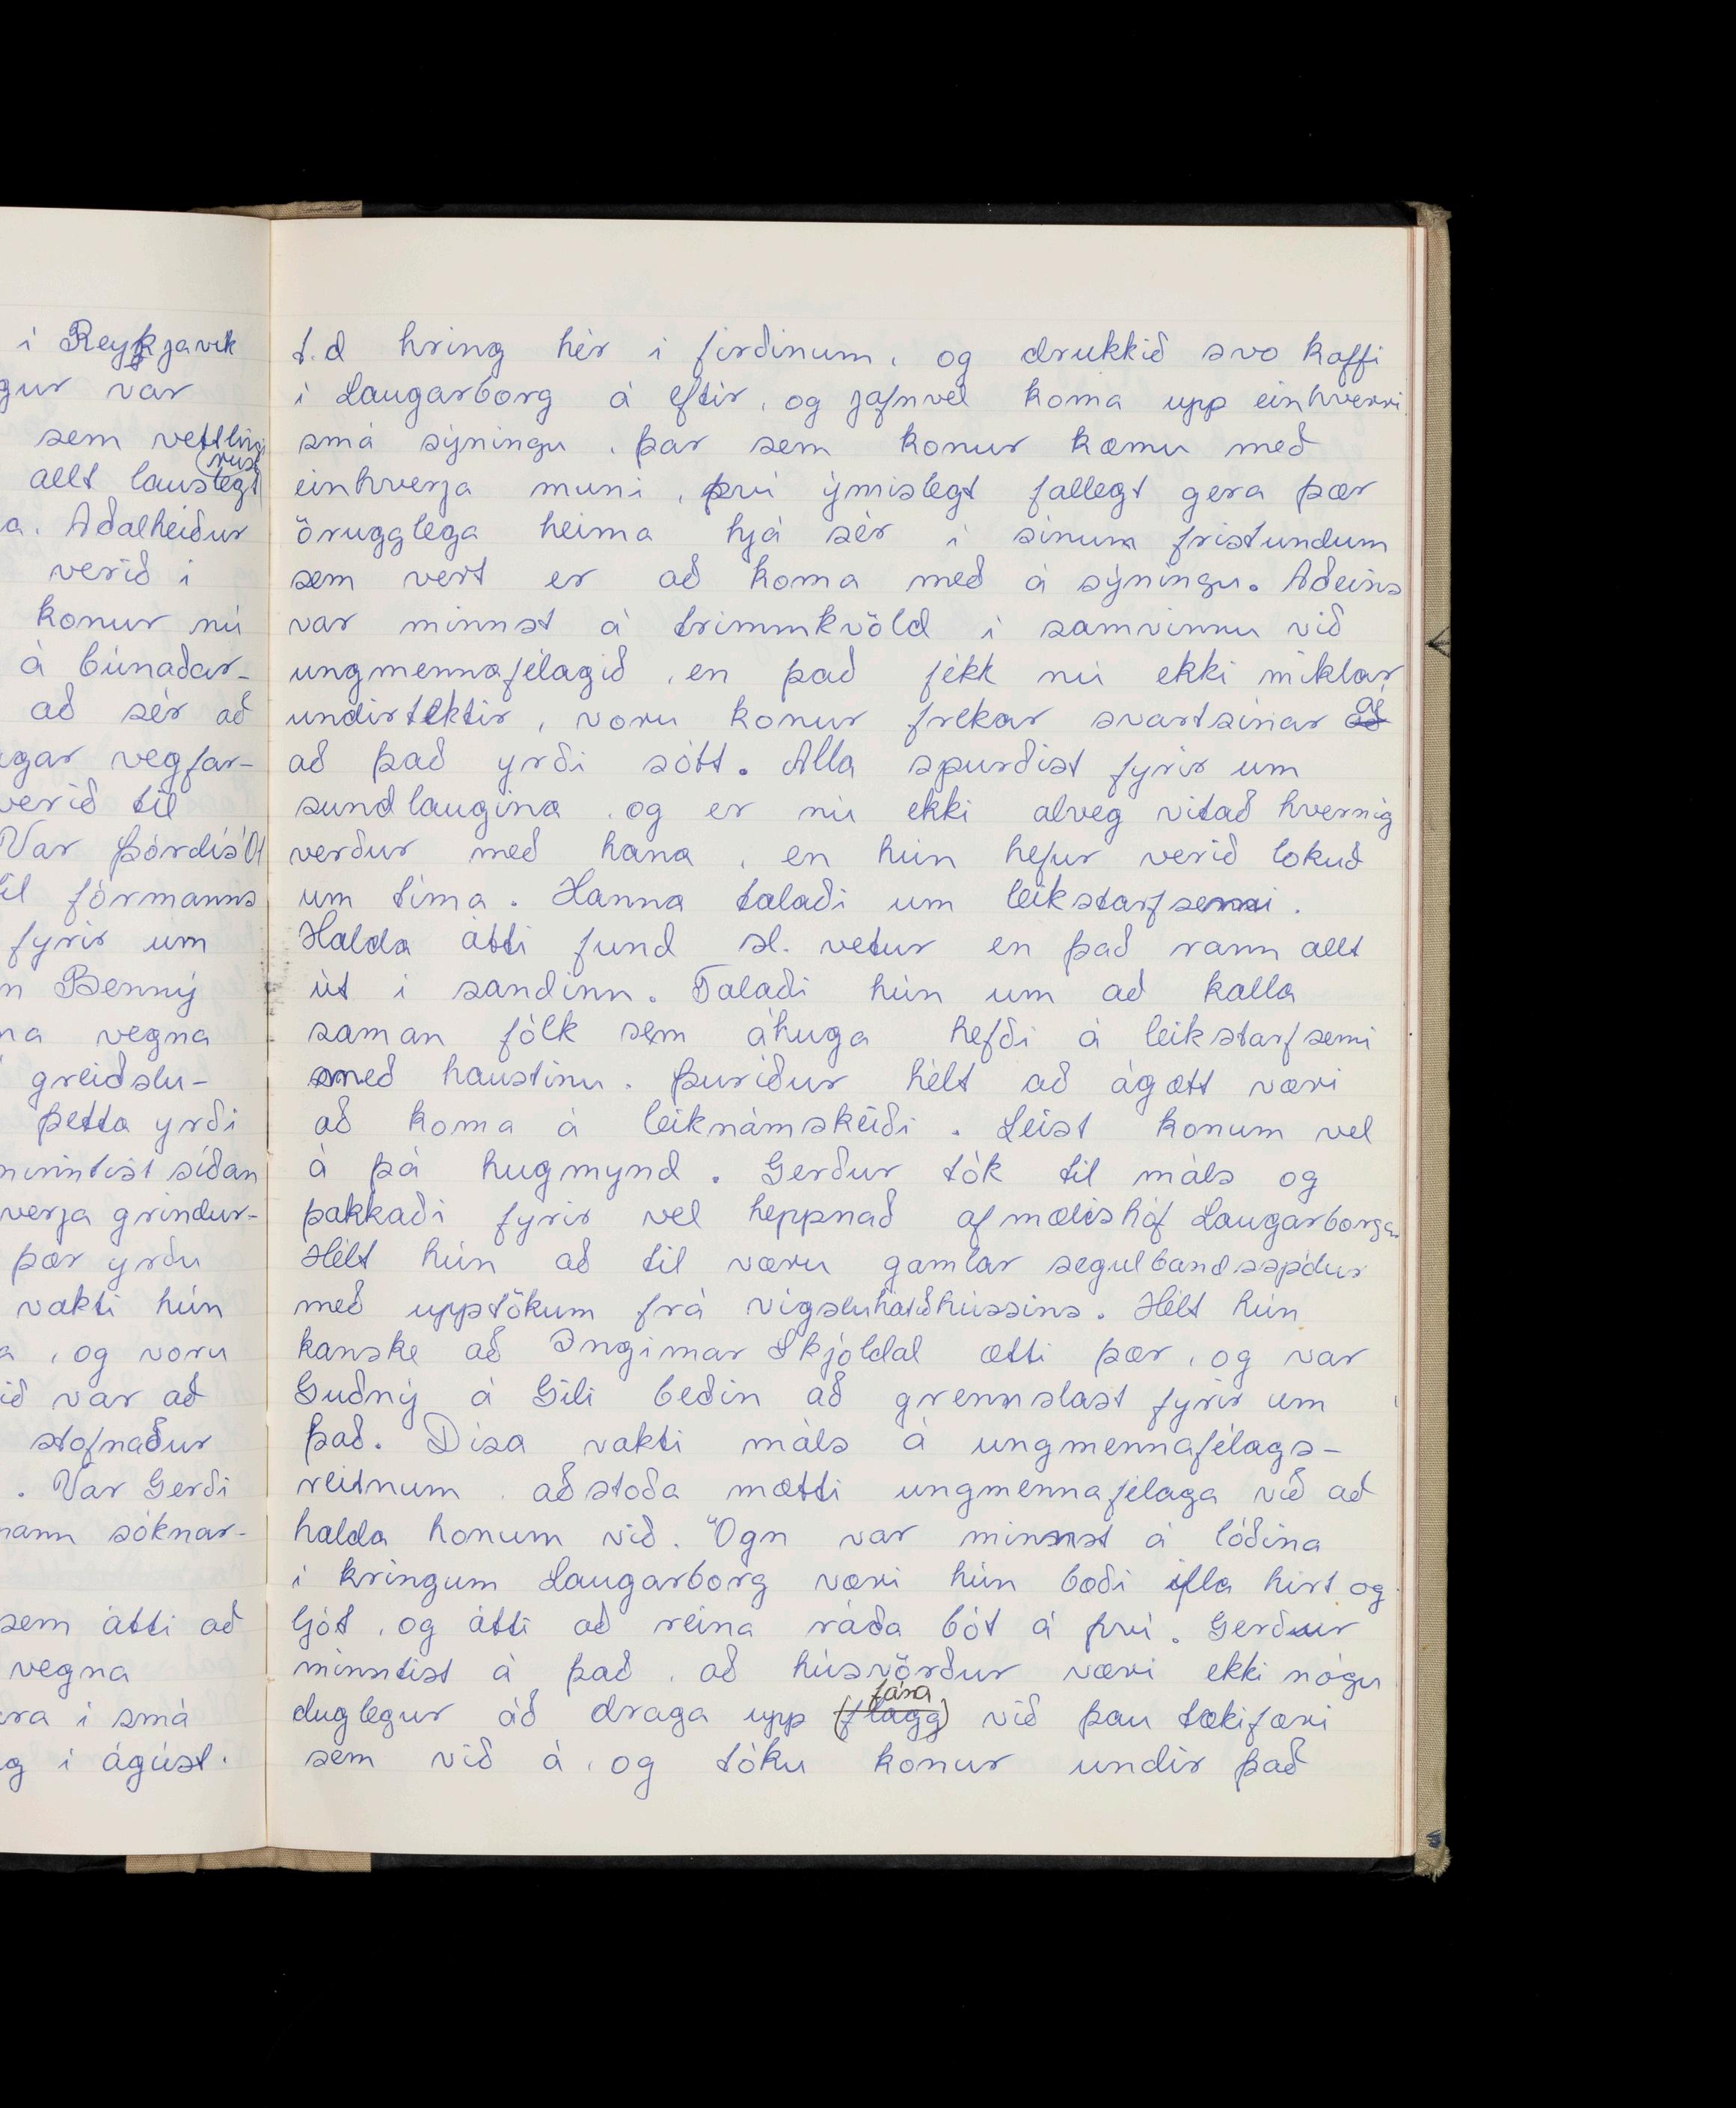 í Reykjavík
gur var
sem vettling
(rusl
allt lauslegt
a. Aðalheiður
verið í
konur nú
á búnaðar-
að sér að
gar vegfar-
verið til
Var Þórdís Ól
til formanns
fyrir um
n Benný
na vegna
greiðslu-
þetta yrði
minntist síðan
verja grindur-
þær yrðu
vakti hún
a, og voru
ið var að
stofnaður
. Var Gerði
mann sóknar-
sem átti að
vegna
ra í smá
g í ágúst.
t.d hring hér í firðinum, og drukkið svo kaffi
í Laugarborg á eftir, og jafnvel koma upp einhverri
smá sýningu, þar sem konur kæmu með
einhverja muni, því ýmislegt fallegt gera þær
örugglega heima hjá sér í sínum frístundum
sem vert er að koma með á sýningu. Aðeins
var minnst á trimmkvöld í samvinnu við
ungmennafélagið, en það fékk nú ekki miklar
undirtektir, voru konur frekar svartsínar á
að það yrði sótt. Alla spurðist fyrir um
sundlaugina, og er nú ekki alveg vitað hvernig
verður með hana, en hún hefur verið lokuð
um tíma. Hanna talaði um leikstarfsemi.
Halda átti fund sl. vetur en það rann allt
út í sandinn. Talaði hún um að kalla
saman fólk sem áhuga hefði á leikstarfsemi
með haustinu. Þuríður hélt að ágætt væri
að koma á leiknámskeiði. Leist konum vel
á þá hugmynd. Gerður tók til máls og
þakkaði fyrir vel heppnað afmælishóf Laugarborgar.
Hélt hún að til væru gamlar segulbandsspólur
með upptökum frá vígsluhátíð hússins. Hélt hún
kanske að Ingimar Skjóldal ætti þær, og var
Guðný á Gili beðin að grennslast fyrir um
það. Dísa vakti máls á ungmennafélags-
reitnum, aðstoða mætti ungmennafélaga við að
halda honum við. Ögn var minnst á lóðina
í kringum Laugarborg væri hún bæði illa hirt og
ljót, og átti að reina ráða bót á því. Gerður
minntist á það, að húsvörður væri ekki nógu
fána
duglegur að draga upp (flagg) við þau tækifæri
sem við á, og tóku konur undir það